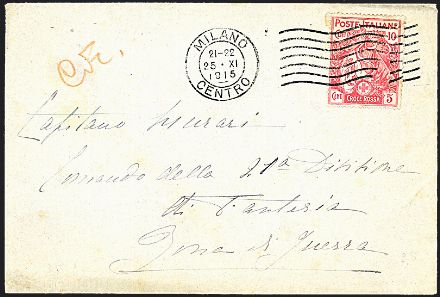 MILANO
21-22
25 · XI
1915
CENTRO
POSTE ITALIANE
10
Cmi 5
CROCE ROSSA
Capitano
Comando della 21a Divisione
di Fanteria
Zona di Guerra